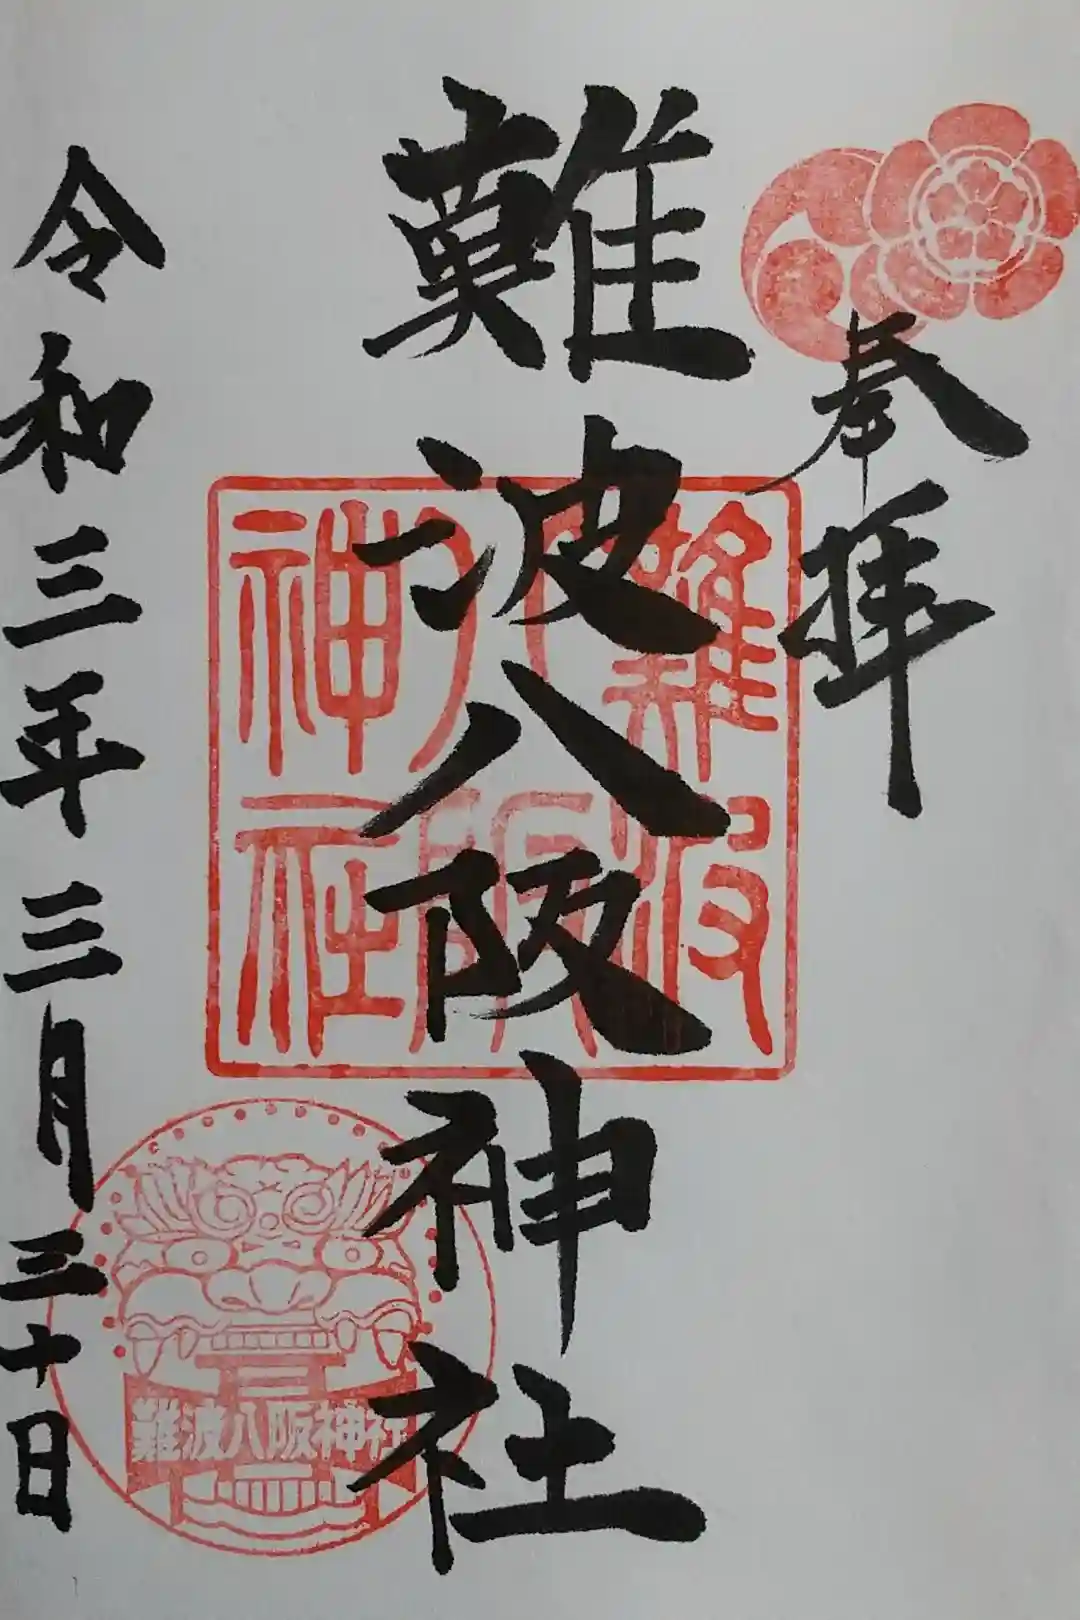 奉拝
難波八阪神社
令和三年三月三十日
難波
八阪
神社
難波八阪神社